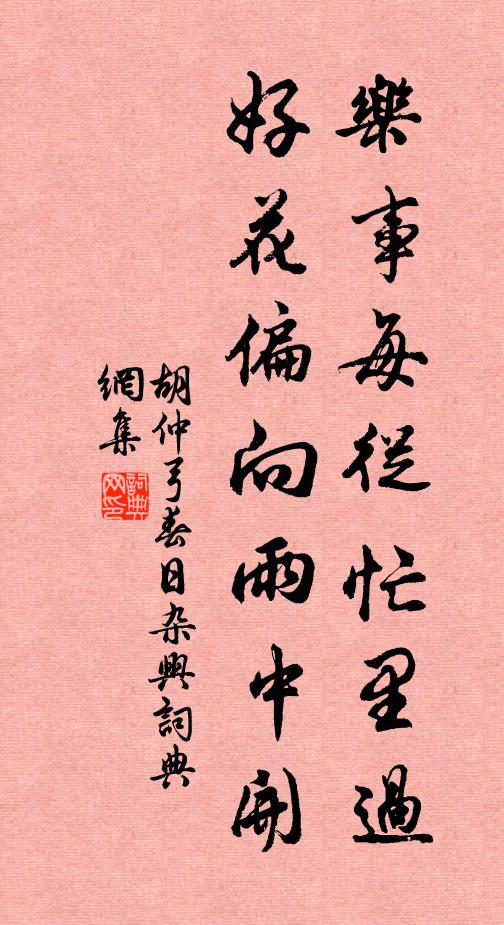 樂事每從忙里過
好花偏向雨中開
胡仲弓春日杂興詞典
網集
詞典
网印